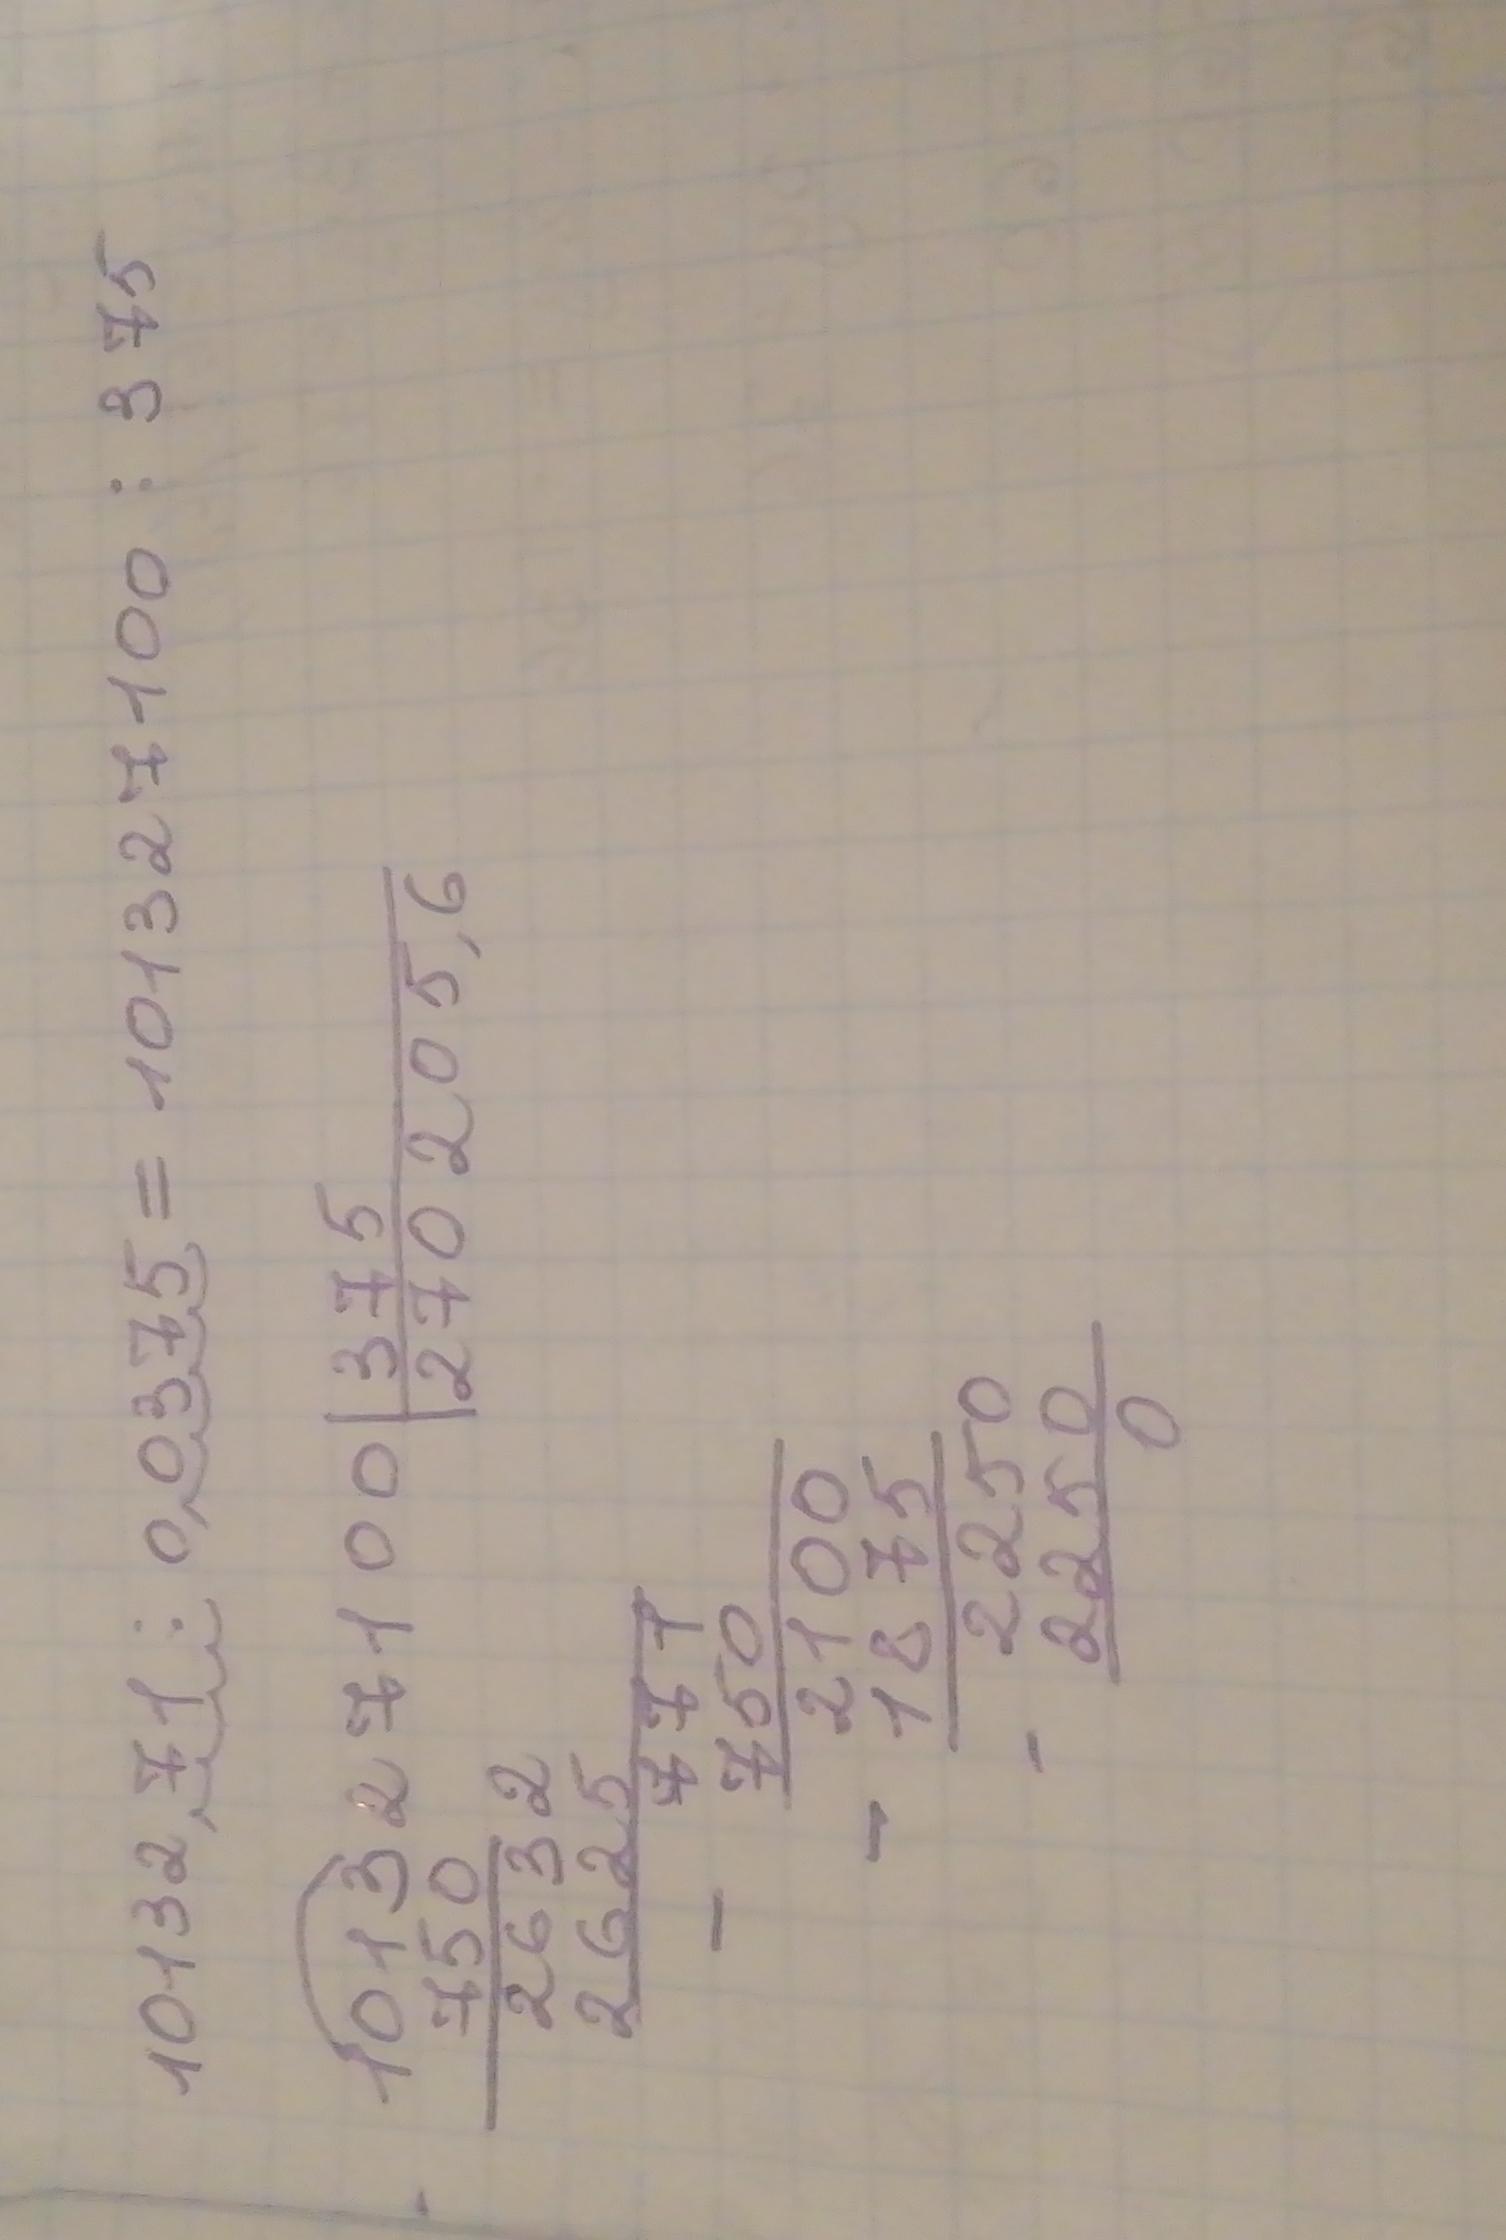 10132,71 : 0,0375 = 101327100 : 375
101327100 | 375
- 750 | 270205,6
2632
2625
771
- 750
2100
- 1875
2250
- 2250
0